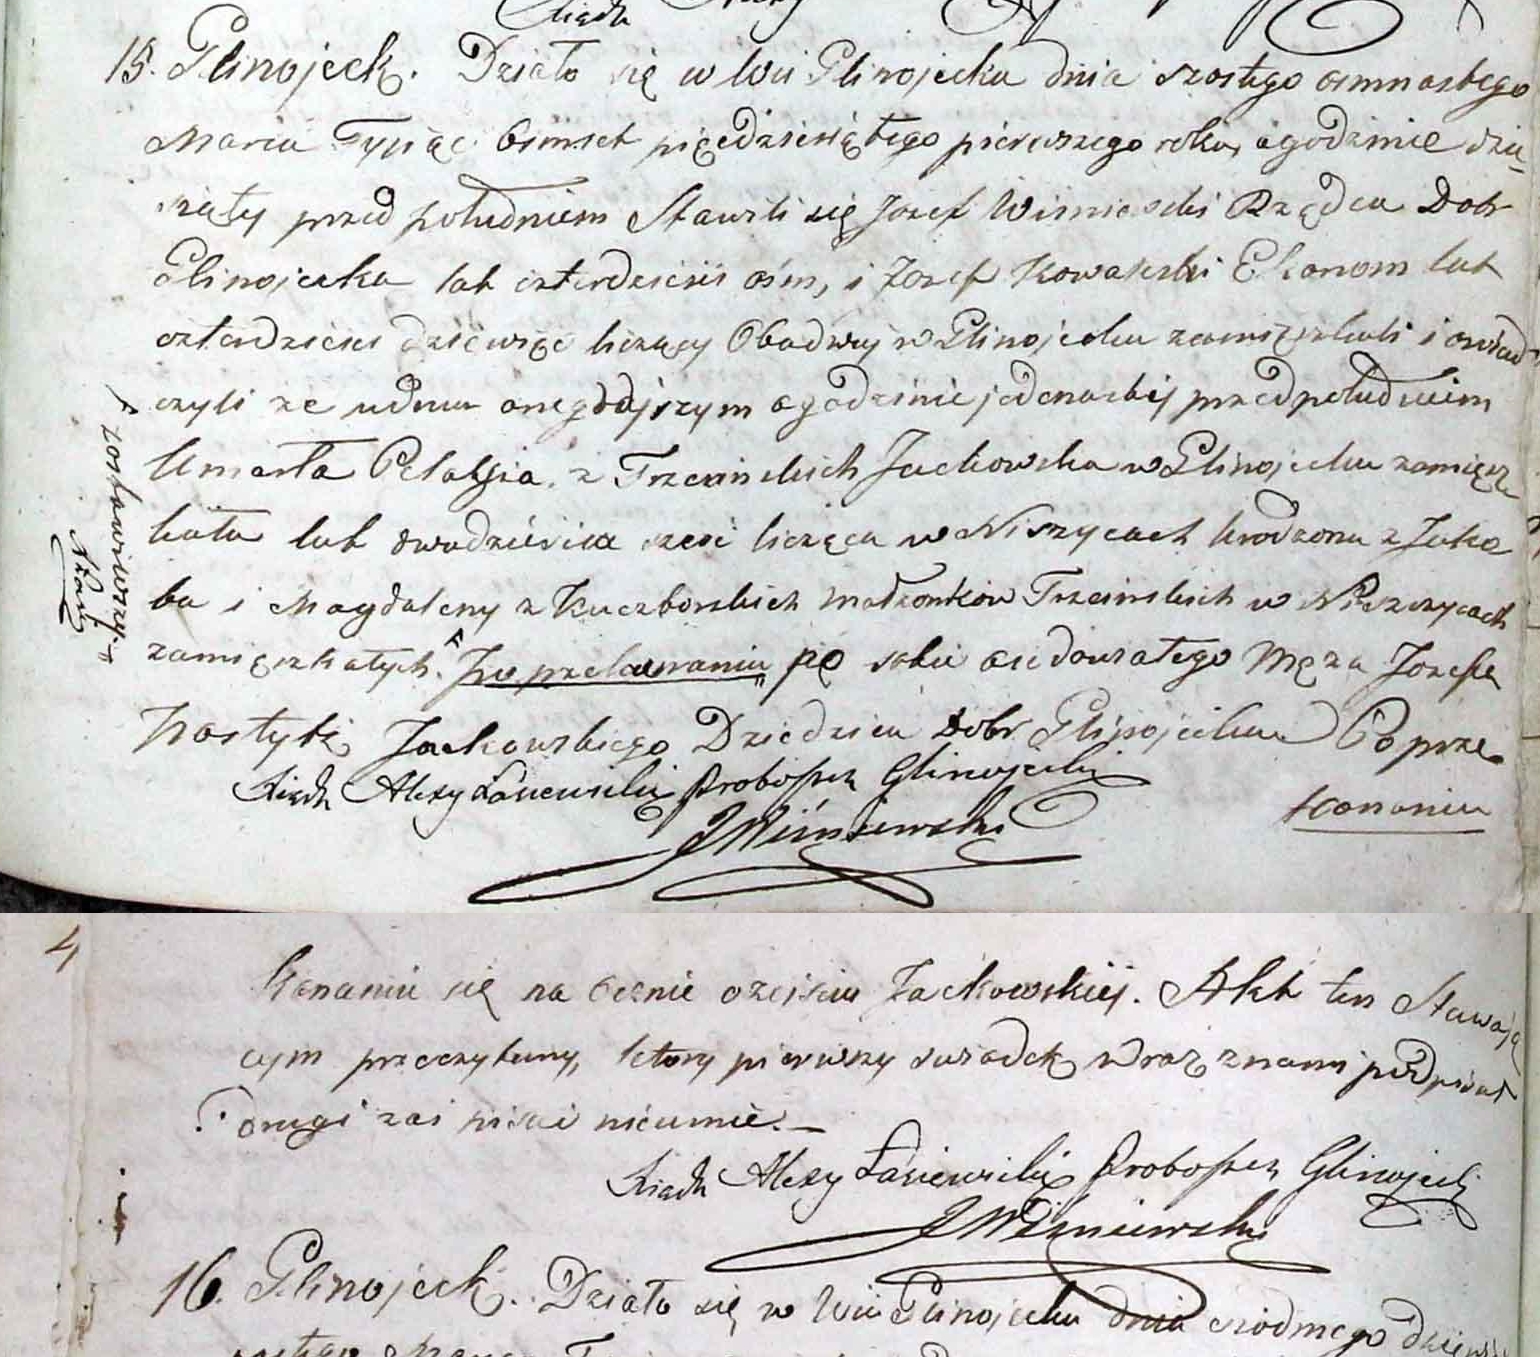 Xiądz
15. Glinojeck. Działo się w Wsi Glinojecku dnia szostego osmnastego
Marca Tysiąc Ośmset pięcdziesiątego pierwszego roku, o godzinie dzie_
siąty przed południem Stawili się Jozef Wisniewski Rządca Dobr
Glinojecka lat czterdziesci ośm, i Jozef Kowalski Ekonom lat
czterdziesci dziewięc liczący Obadwaj w Glinojecku zamięszkali i oswiad
czyli ze w dniu onegdajszym o godzinie jedenastej przed południem
Umarła Pelagia z Trzcinskich Jackowska w Glinojecku zamiesz
kała lat dwadziescia szesc licząca w Niszczycach urodzona z Jako
ba i Magdaleny z Kuczborskich małzonkow Trzcinskich w Niszczycach
zamięszkałych. po sobie owdowiałego Męza Jozefa
Kostykę Jackowskiego Dziedzica Dobr Glinojecka Po prze
Xiądz Alexy Łasiewski Proboszcz Glinojecki
konaniu
JWiśniewski
zostawiwszy
4
konaniu się na ocznie o zejsciu Jackowskiej. Akt ten Stawają
cym przeczytany, ktory pierwszy swiadek wraz z nami podpisał
drugi zas pisac nieumie._
Xiądz Alexy Łasiewski Proboszcz Glinojecki
JWiśniewski
16. Glinojeck. Działo się w Wsi Glinojecku dnia siodmego dziew